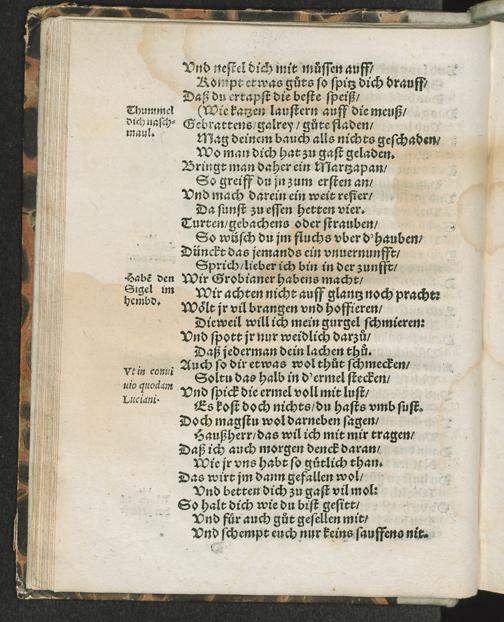 Vnd nestel dich mit müssen auff/
Kompt etwas gůts so spitz dich drauff/
Daß du ertapst die beste speiß/
(Wie katzen laustern auff die meuß/
Thummel
dich nasch-
maul.
Gebrattens/galrey/gůte fladen/
Mag deinem bauch alls nichts geschaden/
Wo man dich hat zu gast geladen.
Bringt man daher ein Martzapan/
So greiff du jn zum ersten an/
Vnd mach darein ein weit refier/
Da sunst zu essen hetten vier.
Turten/gebachens oder strauben/
So wüsch du jm fluchs vber d'hauben/
Dünckt das jemands ein vnuernunfft/
Sprich/lieber ich bin in der zunfft/
Habẽ den
Sigel im
hembd.
Wir Grobianer habens macht/
Wir achten nicht auff glantz noch pracht:
Wölt jr vil brangen vnd hoffieren/
Dieweil will ich mein gurgel schmieren:
Vnd spott jr nur weidlich darzů/
Daß jederman dein lachen thů.
Vt in conui
uio quodam
Luciani.
Auch so dir etwas wol thůt schmecken/
Soltu das halb in d'ermel stecken/
Vnd spick die ermel voll mit lust/
Es kost doch nichts/du hasts vmb sust.
Doch magstu wol darneben sagen/
Haußherr/das wil ich mit mir tragen/
Daß ich auch morgen denck daran/
Wie jr vns habt so gütlich than.
Das wirt jm dann gefallen wol/
Vnd betten dich zu gast vil mol:
So halt dich wie du bist gesitt/
Vnd für auch gůt gesellen mit/
Vnd schempt euch nur keins sauffens nit.